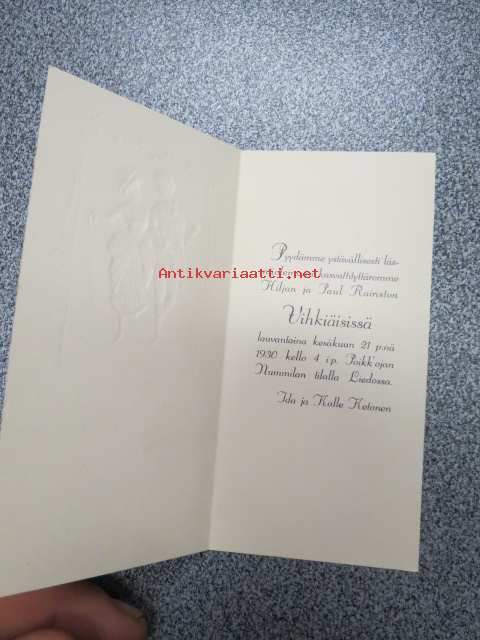 Pyydämme ystävällisesti läs-
kasvattityttäremme
Antikvariaatti.net
Hiljan ja Paul Raineston
Vihkiäisissä
lauvantaina kesäkuun 21 p:nä
1930 kello 4 i.p. Poikk'ojan
Nummilan tilalla Liedossa.
Ida ja Kalle Ketonen